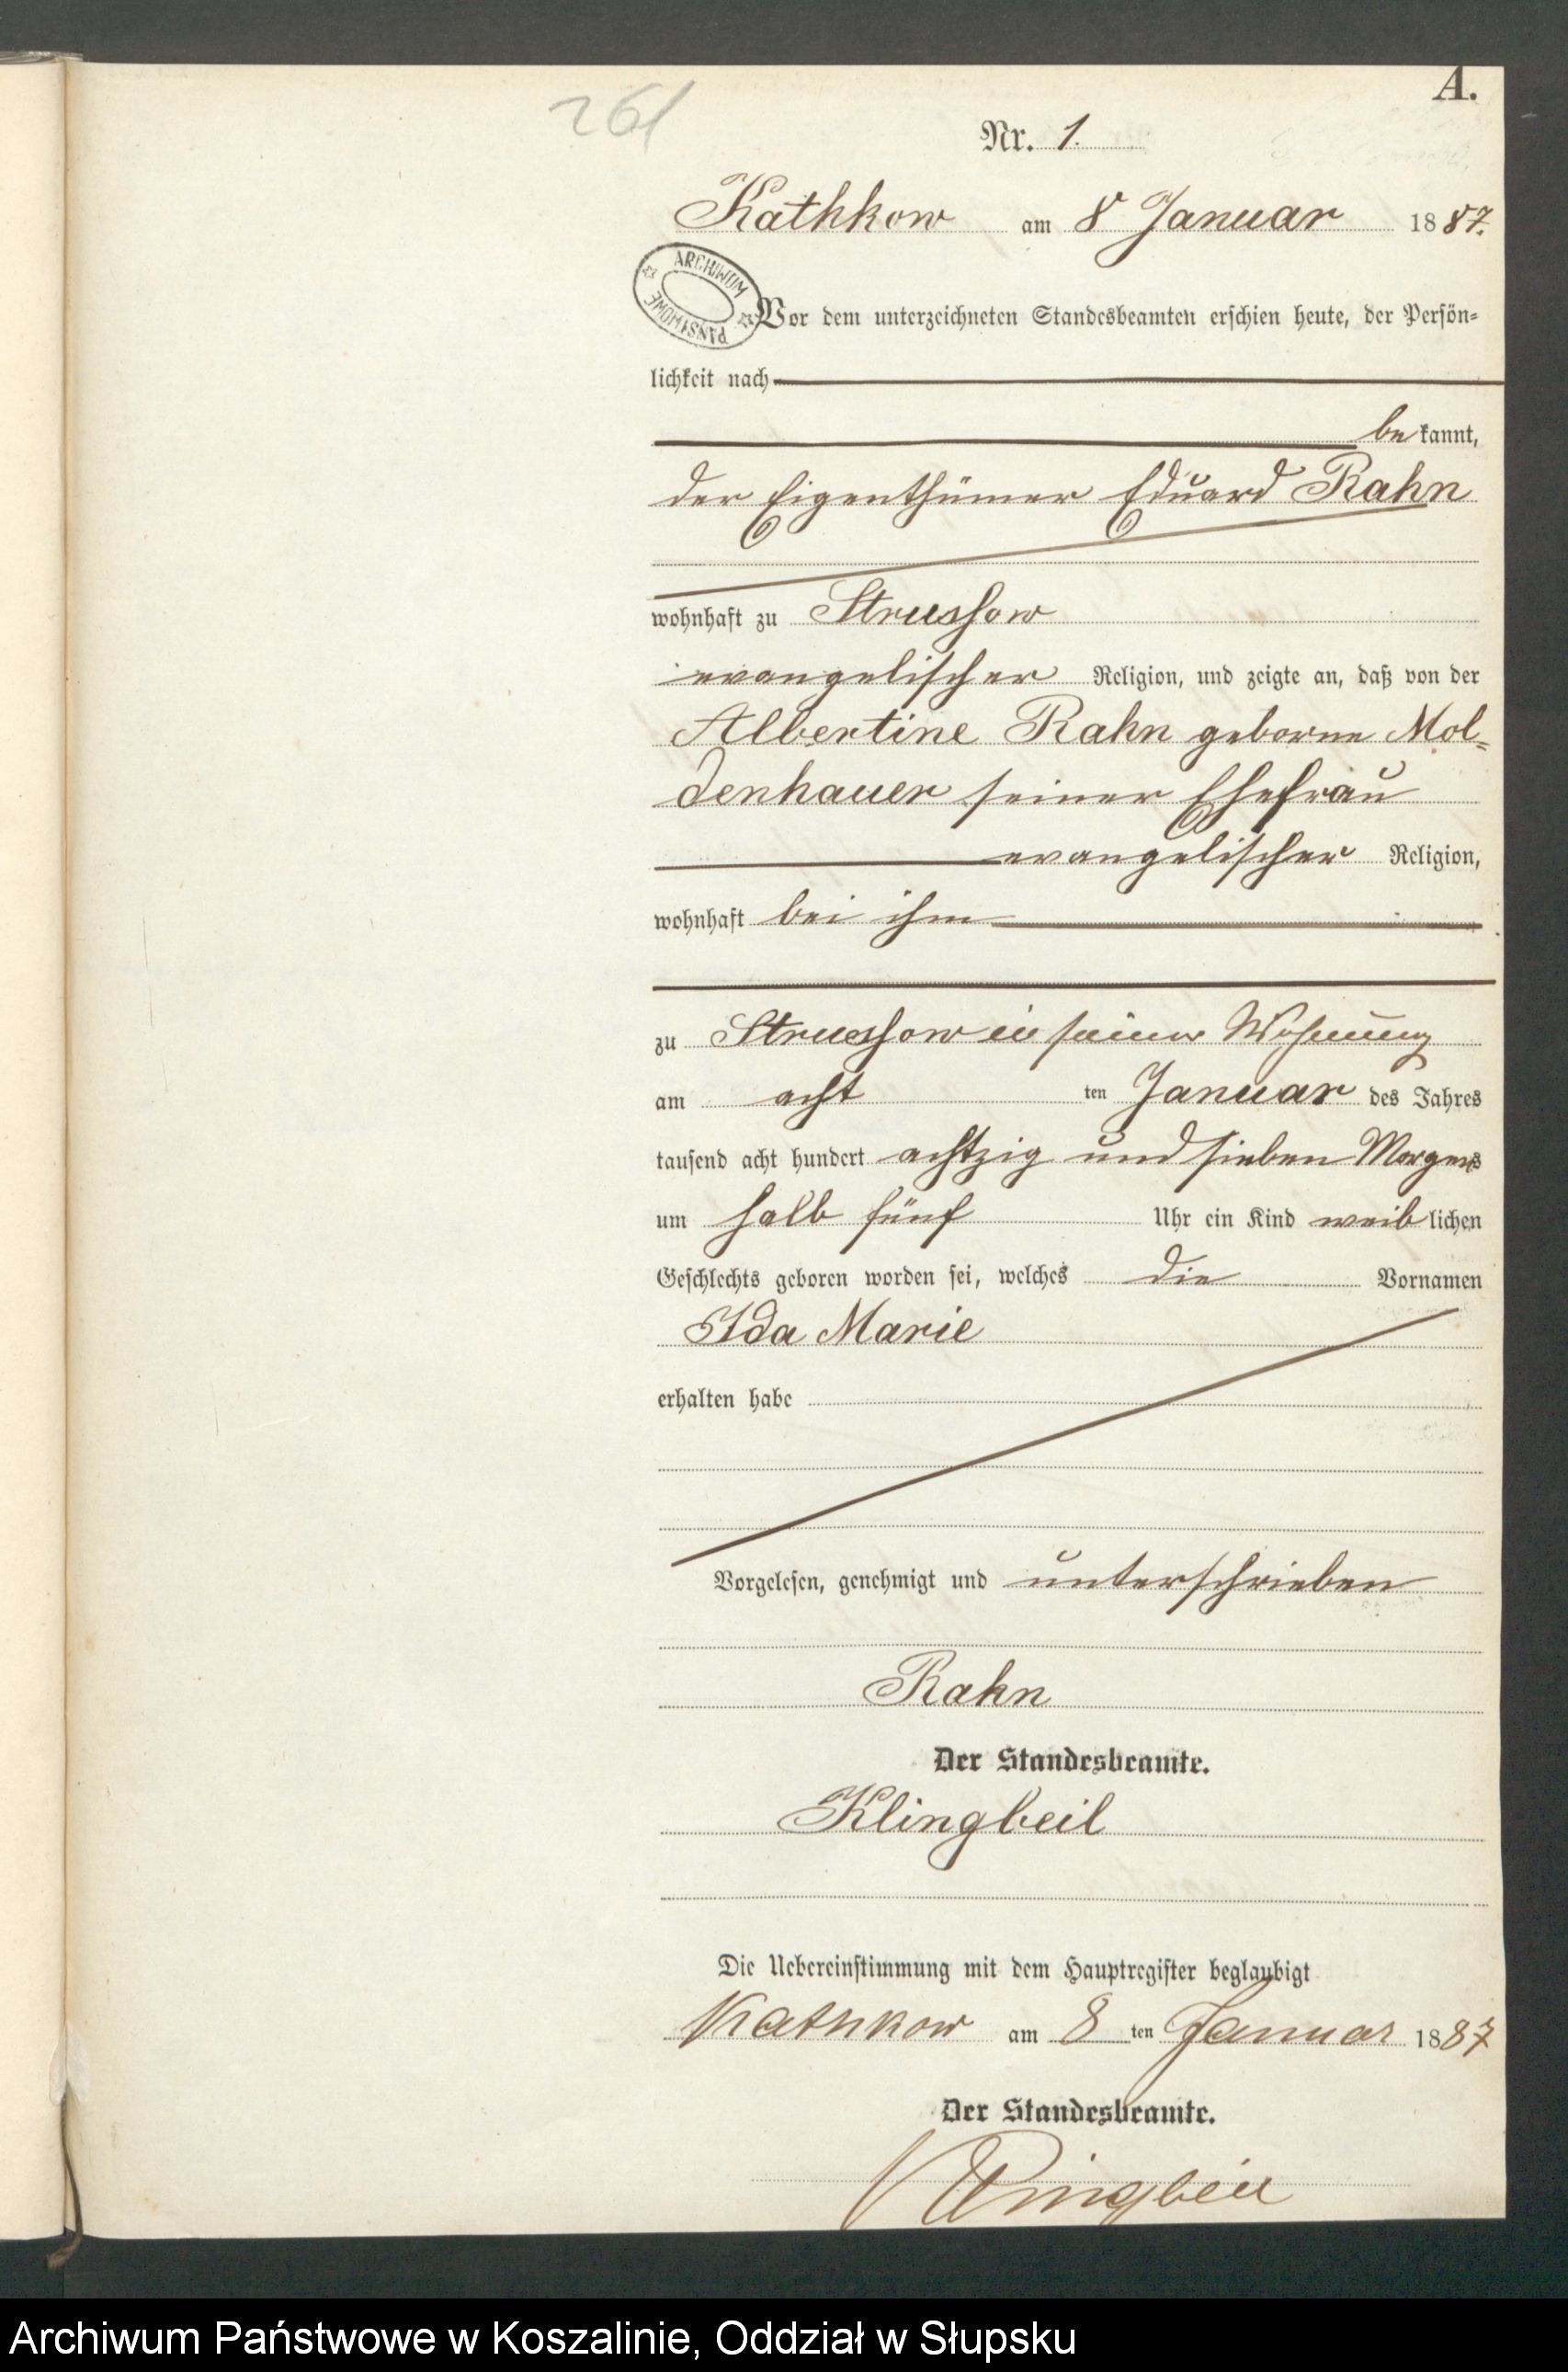 A.
261
Nr. 1.
Kathkow am 8 Januar 1887.
ARCHIWUM PAŃSTWOWE
Vor dem unterzeichneten Standesbeamten erschien heute, der Persön-
lichkeit nach
bekannt,
der Eigenthümer Eduard Rahn
wohnhaft zu Strussow
evangelischer Religion, und zeigte an, daß von der
Albertine Rahn geborne Mol-
denhauer seiner Ehefrau
evangelischer Religion,
wohnhaft bei ihm
zu Strussow in seiner Wohnung
am acht ten Januar des Jahres
tausend acht hundert achtzig und sieben Morgens
um halb fünf Uhr ein Kind weiblichen
Geschlechts geboren worden sei, welches die Vornamen
Ida Marie
erhalten habe
Vorgelesen, genehmigt und unterschrieben
Rahn
Der Standesbeamte.
Klingbeil
Die Uebereinstimmung mit dem Hauptregister beglaubigt
Kathkow am 8 ten Januar 1887
Der Standesbeamte.
Klingbeil
Archiwum Państwowe w Koszalinie, Oddział w Słupsku